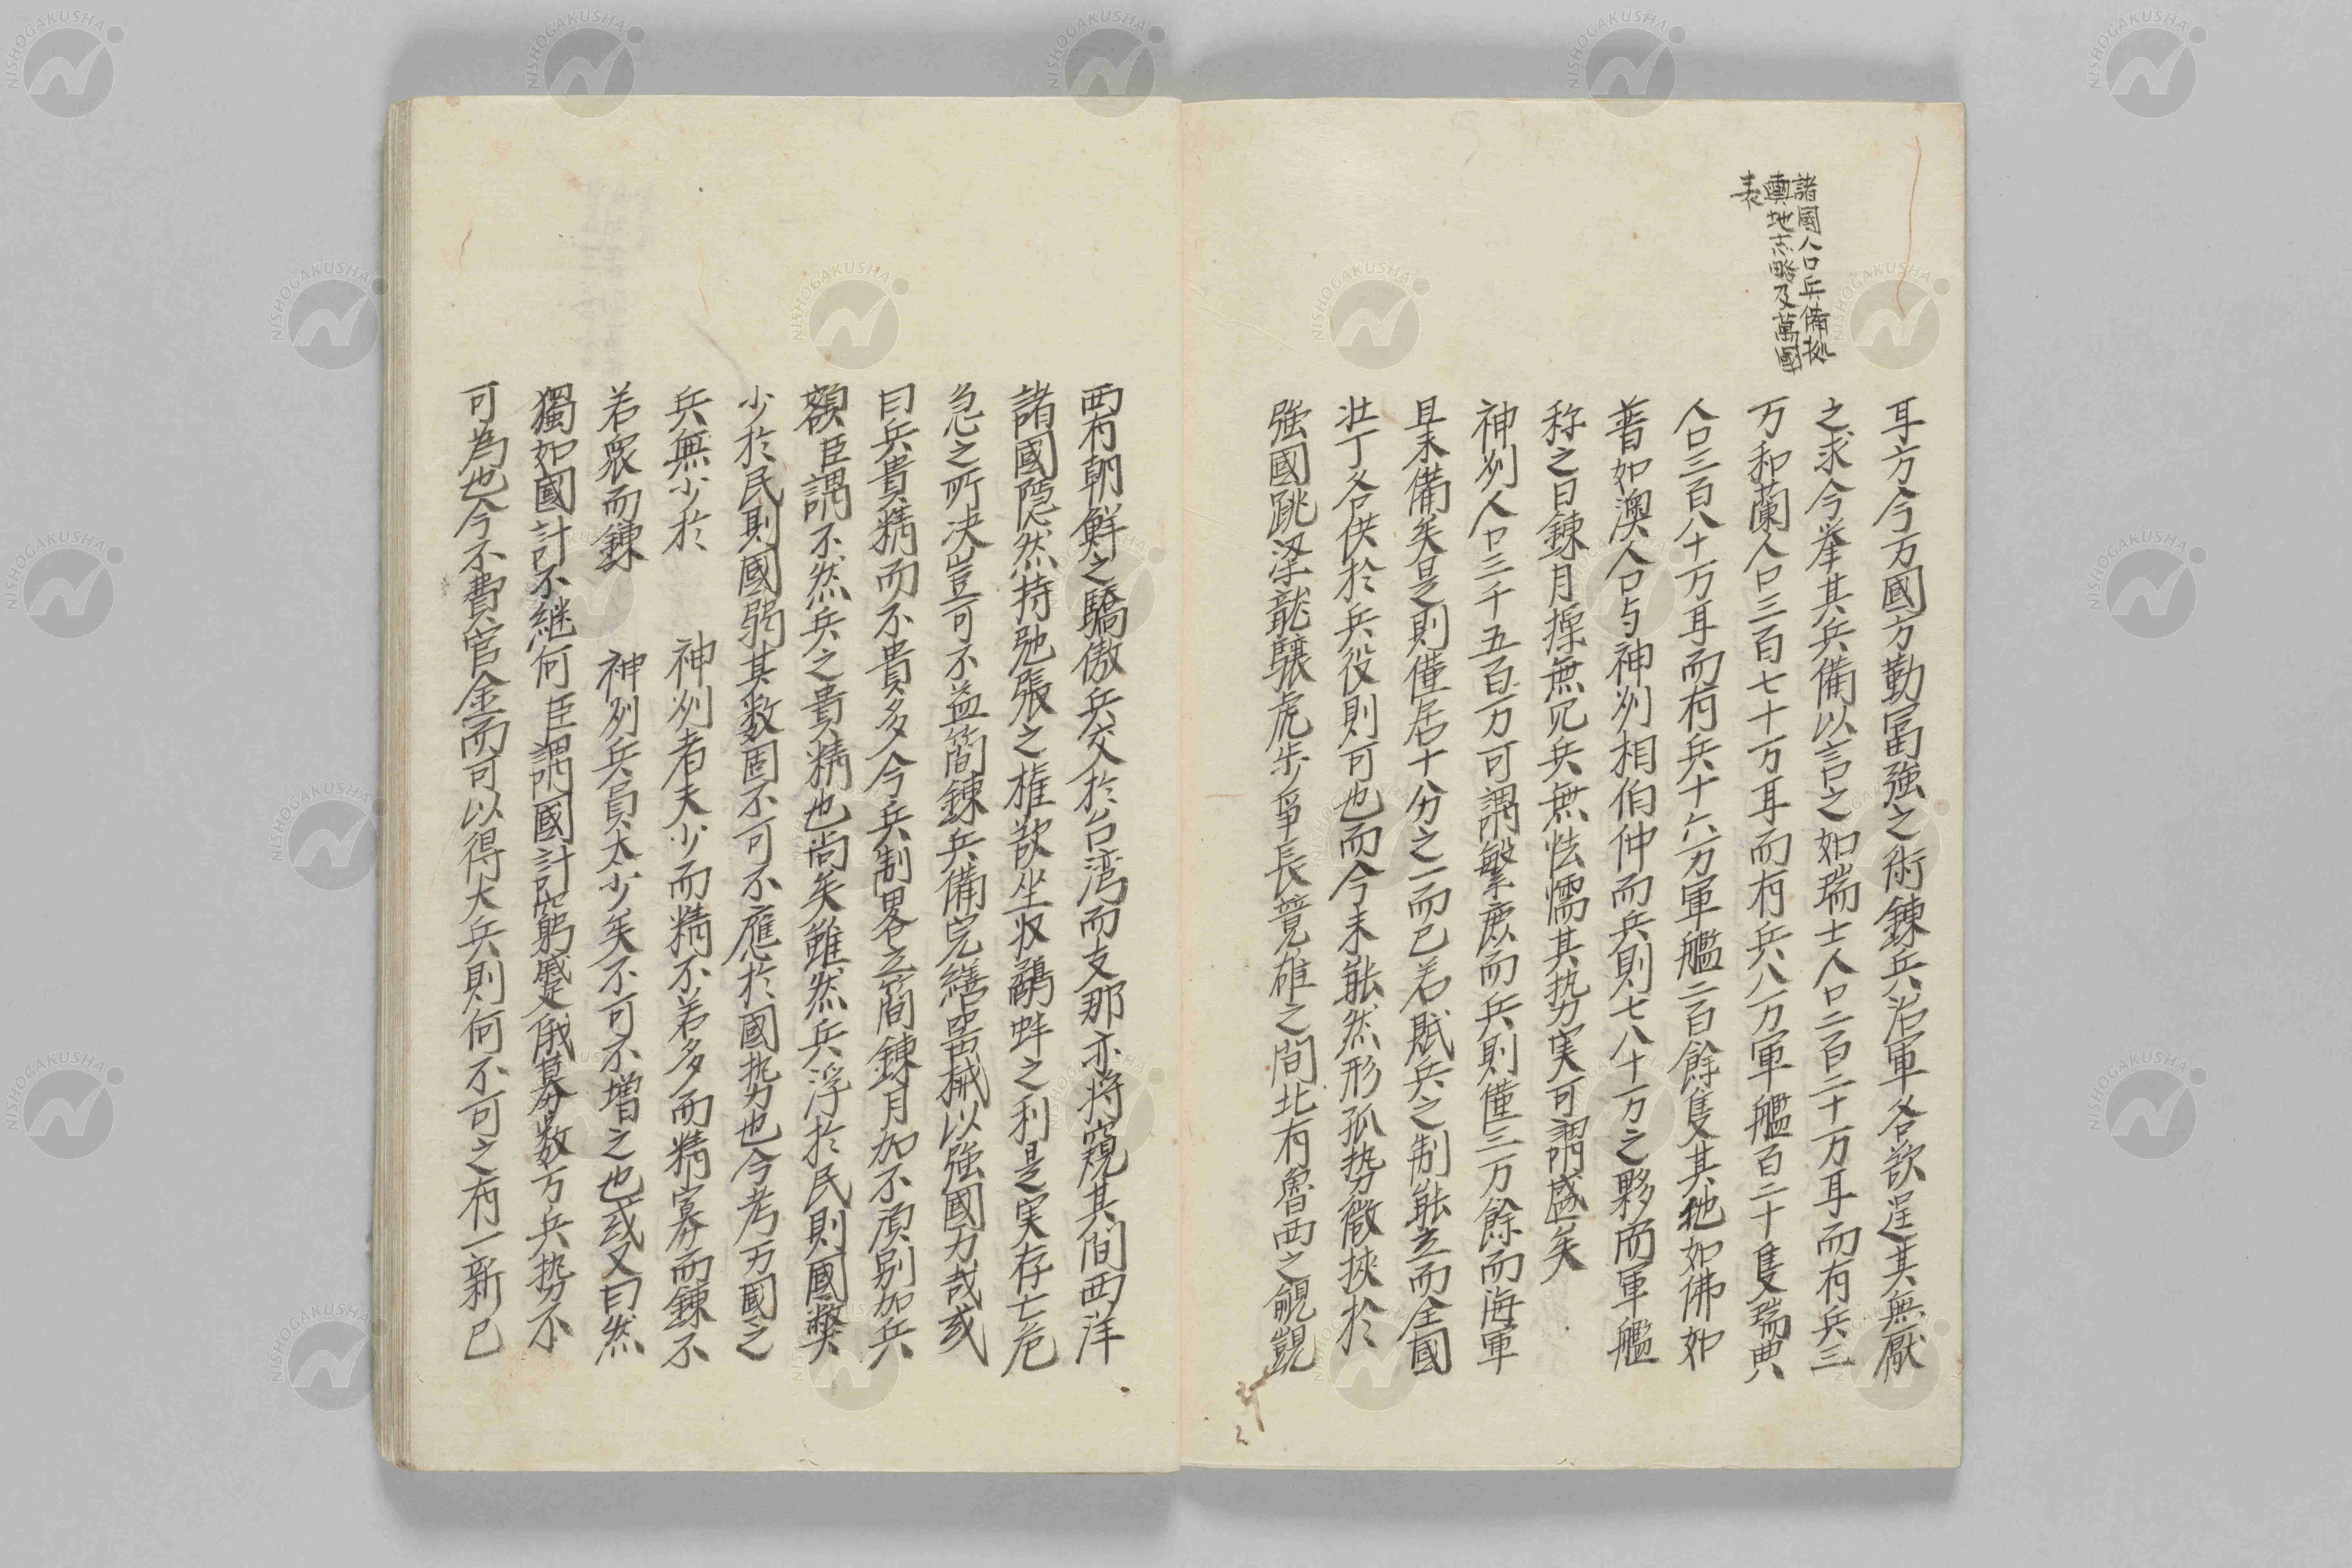 諸國人口兵備拠
輿地志畧及萬國
表
耳方今万國方勤冨強之術錬兵治軍各欲逞其無厭
之求今挙其兵備以言之如瑞士人口二百二十万耳而有兵三
万和蘭人口三百七十万耳而有兵八万軍艦百二十隻瑞典
人口三百八十万耳而有兵十六万軍艦二百餘隻其他如佛如
普如澳人口与神州相伯仲而兵則七八十万之夥而軍艦
称之日錬月操無冗兵無怯懦其势実可謂盛矣
神州人口三千五百万可謂繁庶而兵則僅三万餘而海軍
且未備矣是則僅居十分之一而已若賦兵之制能立而全國
壮丁各供於兵役則可也而今未能然形孤势微挾於
強國跳梁龍驤虎歩爭長競雄之間北有魯西之覦覬
西有朝鮮之驕傲兵交於台湾而支那亦将窺其間西洋
諸國隠然持弛張之権欲坐収鷸蚌之利是実存亡危
急之所决豈可不益簡錬兵備完繕器械以強國力哉或
曰兵貴精而不貴多今兵制畧立簡錬月加不須别加兵
額臣謂不然兵之貴精也尚矣雖然兵浮於民則國弊
少於民則國弱其数固不可不應於國势也今考万國之
兵無少於 神州者夫少而精不若多而精寡而錬不
若衆而錬 神州兵員太少矣不可不增之也或又曰然
獨如國計不継何臣謂國計窮蹙俄募数万兵势不
可為也今不費官金而可以得大兵則何不可之有一新已